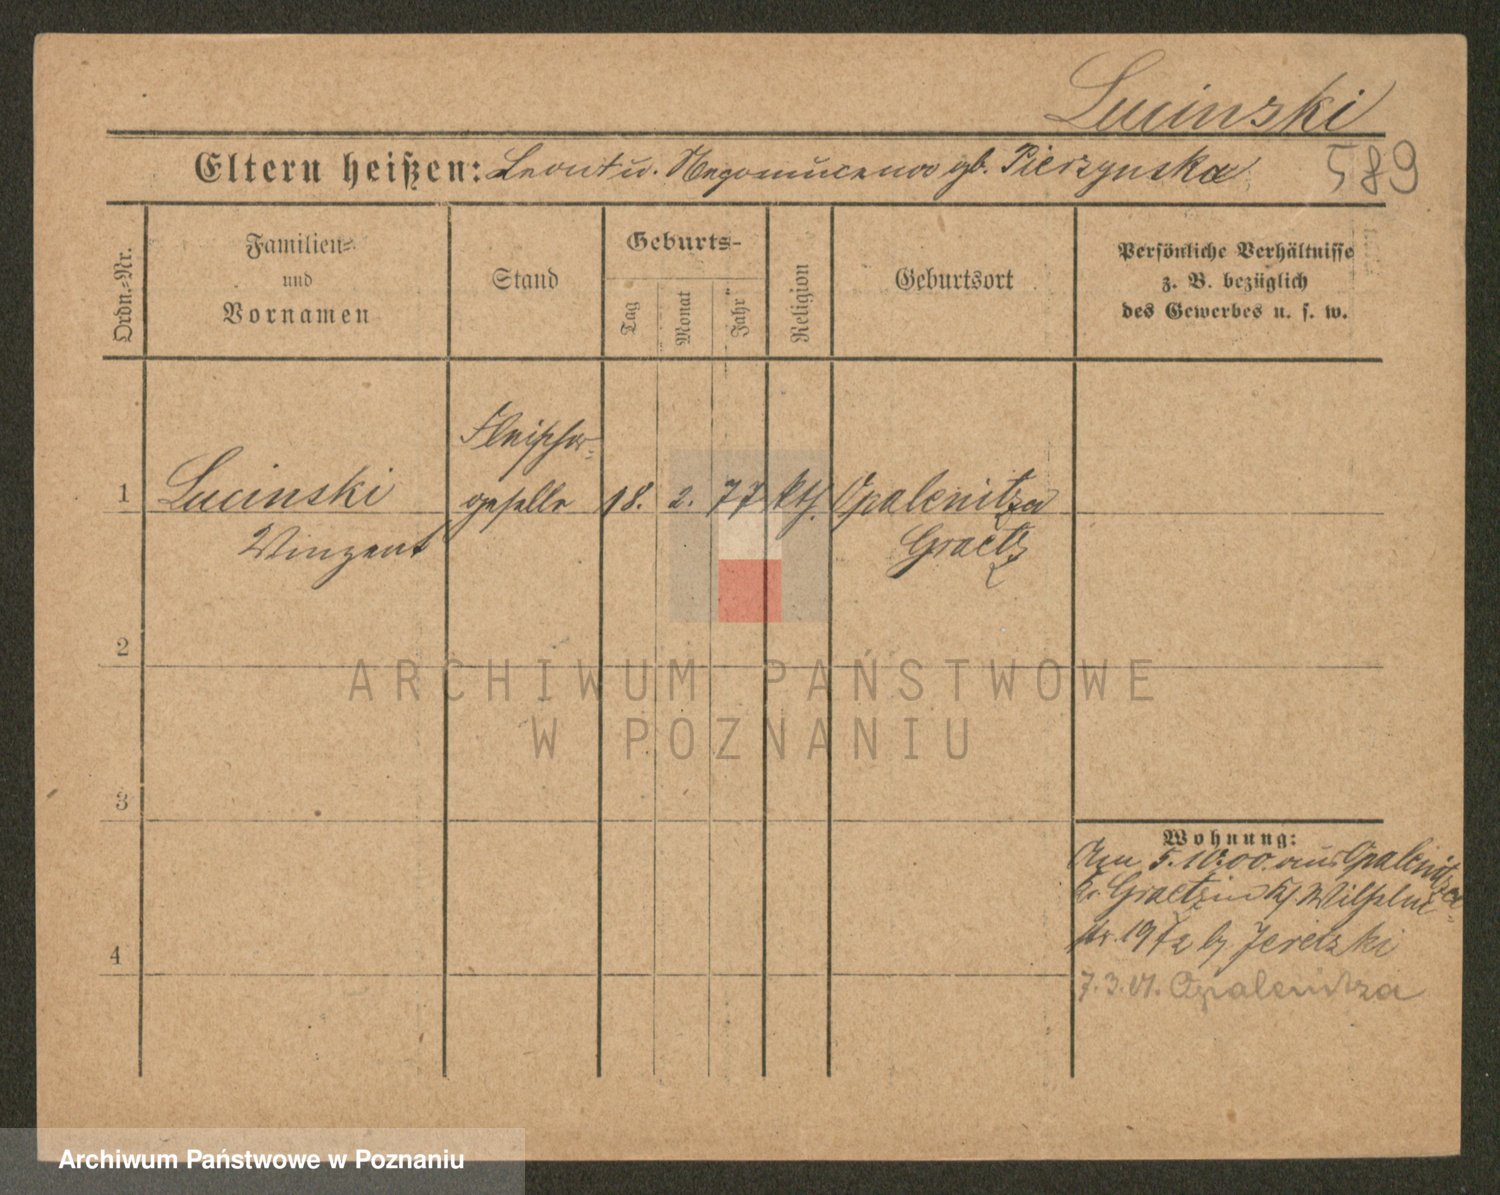 Lucinski
Eltern heißen: Leont u. Nepomucena gb. Pierzynska
589
Ordn.-Nr.
Familien-
und
Vornamen
Stand
Geburts-
Tag
Monat
Jahr
Religion
Geburtsort
Persönliche Verhältnisse
z. B. bezüglich
des Gewerbes u. s. w.
Fleischer-
1 Lucinski geselle 18. 2. 77 kth. Opalenitza
Vinzent Graetz
2
3
4
Wohnung:
Am 5.10.00. aus Opalenitza
Kr. Graetz in Wilhelm-
str. 19 b/ Jeretzki
7.3.01. Opalenitza
ARCHIWUM PAŃSTWOWE
W POZNANIU
Archiwum Państwowe w Poznaniu